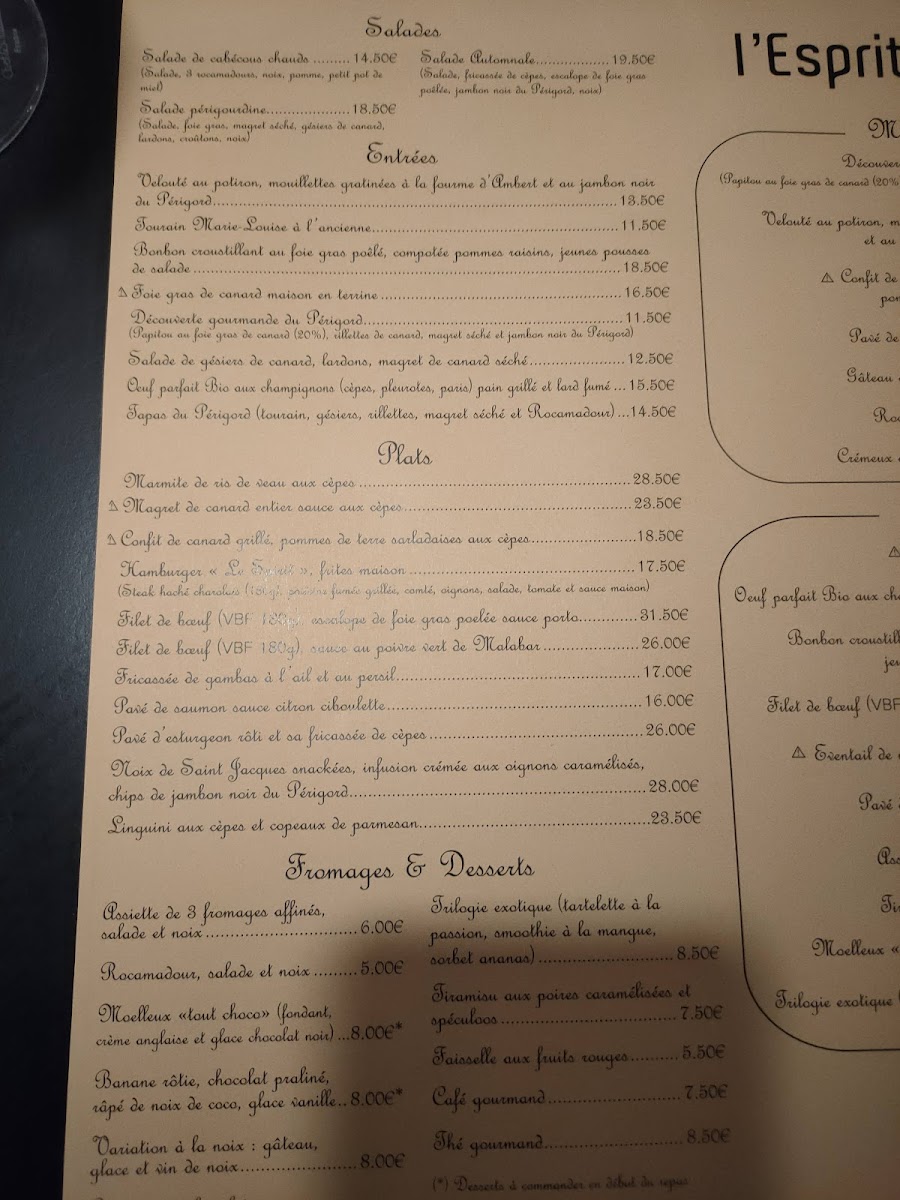 Salades
Salade de cabécous chauds ......... 14.50€
(Salade, 3 rocamadours, noix, pomme, petit pot de
miel)
Salade périgourdine.....................18.50€
(Salade, foie gras, magret séché, gésiers de canard,
lardons, croûtons, noix)
Salade Automnale..................19.50€
(Salade, fricassée de cèpes, escalope de foie gras
poêlée, jambon noir du Périgord, noix)
Entrées
Velouté au potiron, mouillettes gratinées à la fourme d'Ambert et au jambon noir
du Périgord.......................................................................13.50€
Tourain Marie-Louise à l'ancienne...........................................11.50€
Bonbon croustillant au foie gras poêlé, compotée pommes raisins, jeunes pousses
de salade ...........................................................................18.50€
⚠ Foie gras de canard maison en terrine ..........................................16.50€
Découverte gourmande du Périgord.............................................11.50€
(Papitou au foie gras de canard (20%), rillettes de canard, magret séché et jambon noir du Périgord)
Salade de gésiers de canard, lardons, magret de canard séché................ 12.50€
Oeuf parfait Bio aux champignons (cèpes, pleurotes, paris) pain grillé et lard fumé ... 15.50€
Tapas du Périgord (tourain, gésiers, rillettes, magret séché et Rocamadour) ...14.50€
Plats
Marmite de ris de veau aux cèpes ...............................................28.50€
⚠ Magret de canard entier sauce aux cèpes.......................................23.50€
⚠ Confit de canard grillé, pommes de terre sarladaises aux cèpes..................18.50€
Hamburger « Le Spirit », frites maison .......................................17.50€
(Steak haché charolais (150g), poitrine fumée grillée, comté, oignons, salade, tomate et sauce maison)
Filet de bœuf (VBF 180g), escalope de foie gras poelée sauce porto..............31.50€
Filet de bœuf (VBF 180g), sauce au poivre vert de Malabar................... 26.00€
Fricassée de gambas à l'ail et au persil......................................... 17.00€
Pavé de saumon sauce citron ciboulette........................................... 16.00€
Pavé d'esturgeon rôti et sa fricassée de cèpes ....................................26.00€
Noix de Saint Jacques snackées, infusion crémée aux oignons caramélisés,
chips de jambon noir du Périgord.................................................... 28.00€
Linguini aux cèpes et copeaux de parmesan........................................23.50€
Fromages & Desserts
Assiette de 3 fromages affinés,
salade et noix ........................... 6.00€
Rocamadour, salade et noix ......... 5.00€
Moelleux «tout choco» (fondant,
crème anglaise et glace chocolat noir) ...8.00€*
Banane rôtie, chocolat praliné,
râpé de noix de coco, glace vanille.. 8.00€*
Variation à la noix : gâteau,
glace et vin de noix.....................8.00€
Trilogie exotique (tartelette à la
passion, smoothie à la mangue,
sorbet ananas) ........................ 8.50€
Tiramisu aux poires caramélisées et
spéculoos ............................... 7.50€
Faisselle aux fruits rouges.......... 5.50€
Café gourmand........................ 7.50€
Thé gourmand......................... 8.50€
(*) Desserts à commander en début du repas
l'Esprit
M
Découver
(Papitou au foie gras de canard (20%)
Velouté au potiron, m
et au
⚠ Confit de
pom
Pavé de
Gâteau
Roc
Crémeux
⚠
Oeuf parfait Bio aux ch
Bonbon croustill
jeu
Filet de bœuf (VBF
⚠ Eventail de
Pavé
Ass
Ti
Moelleux «
Trilogie exotique (